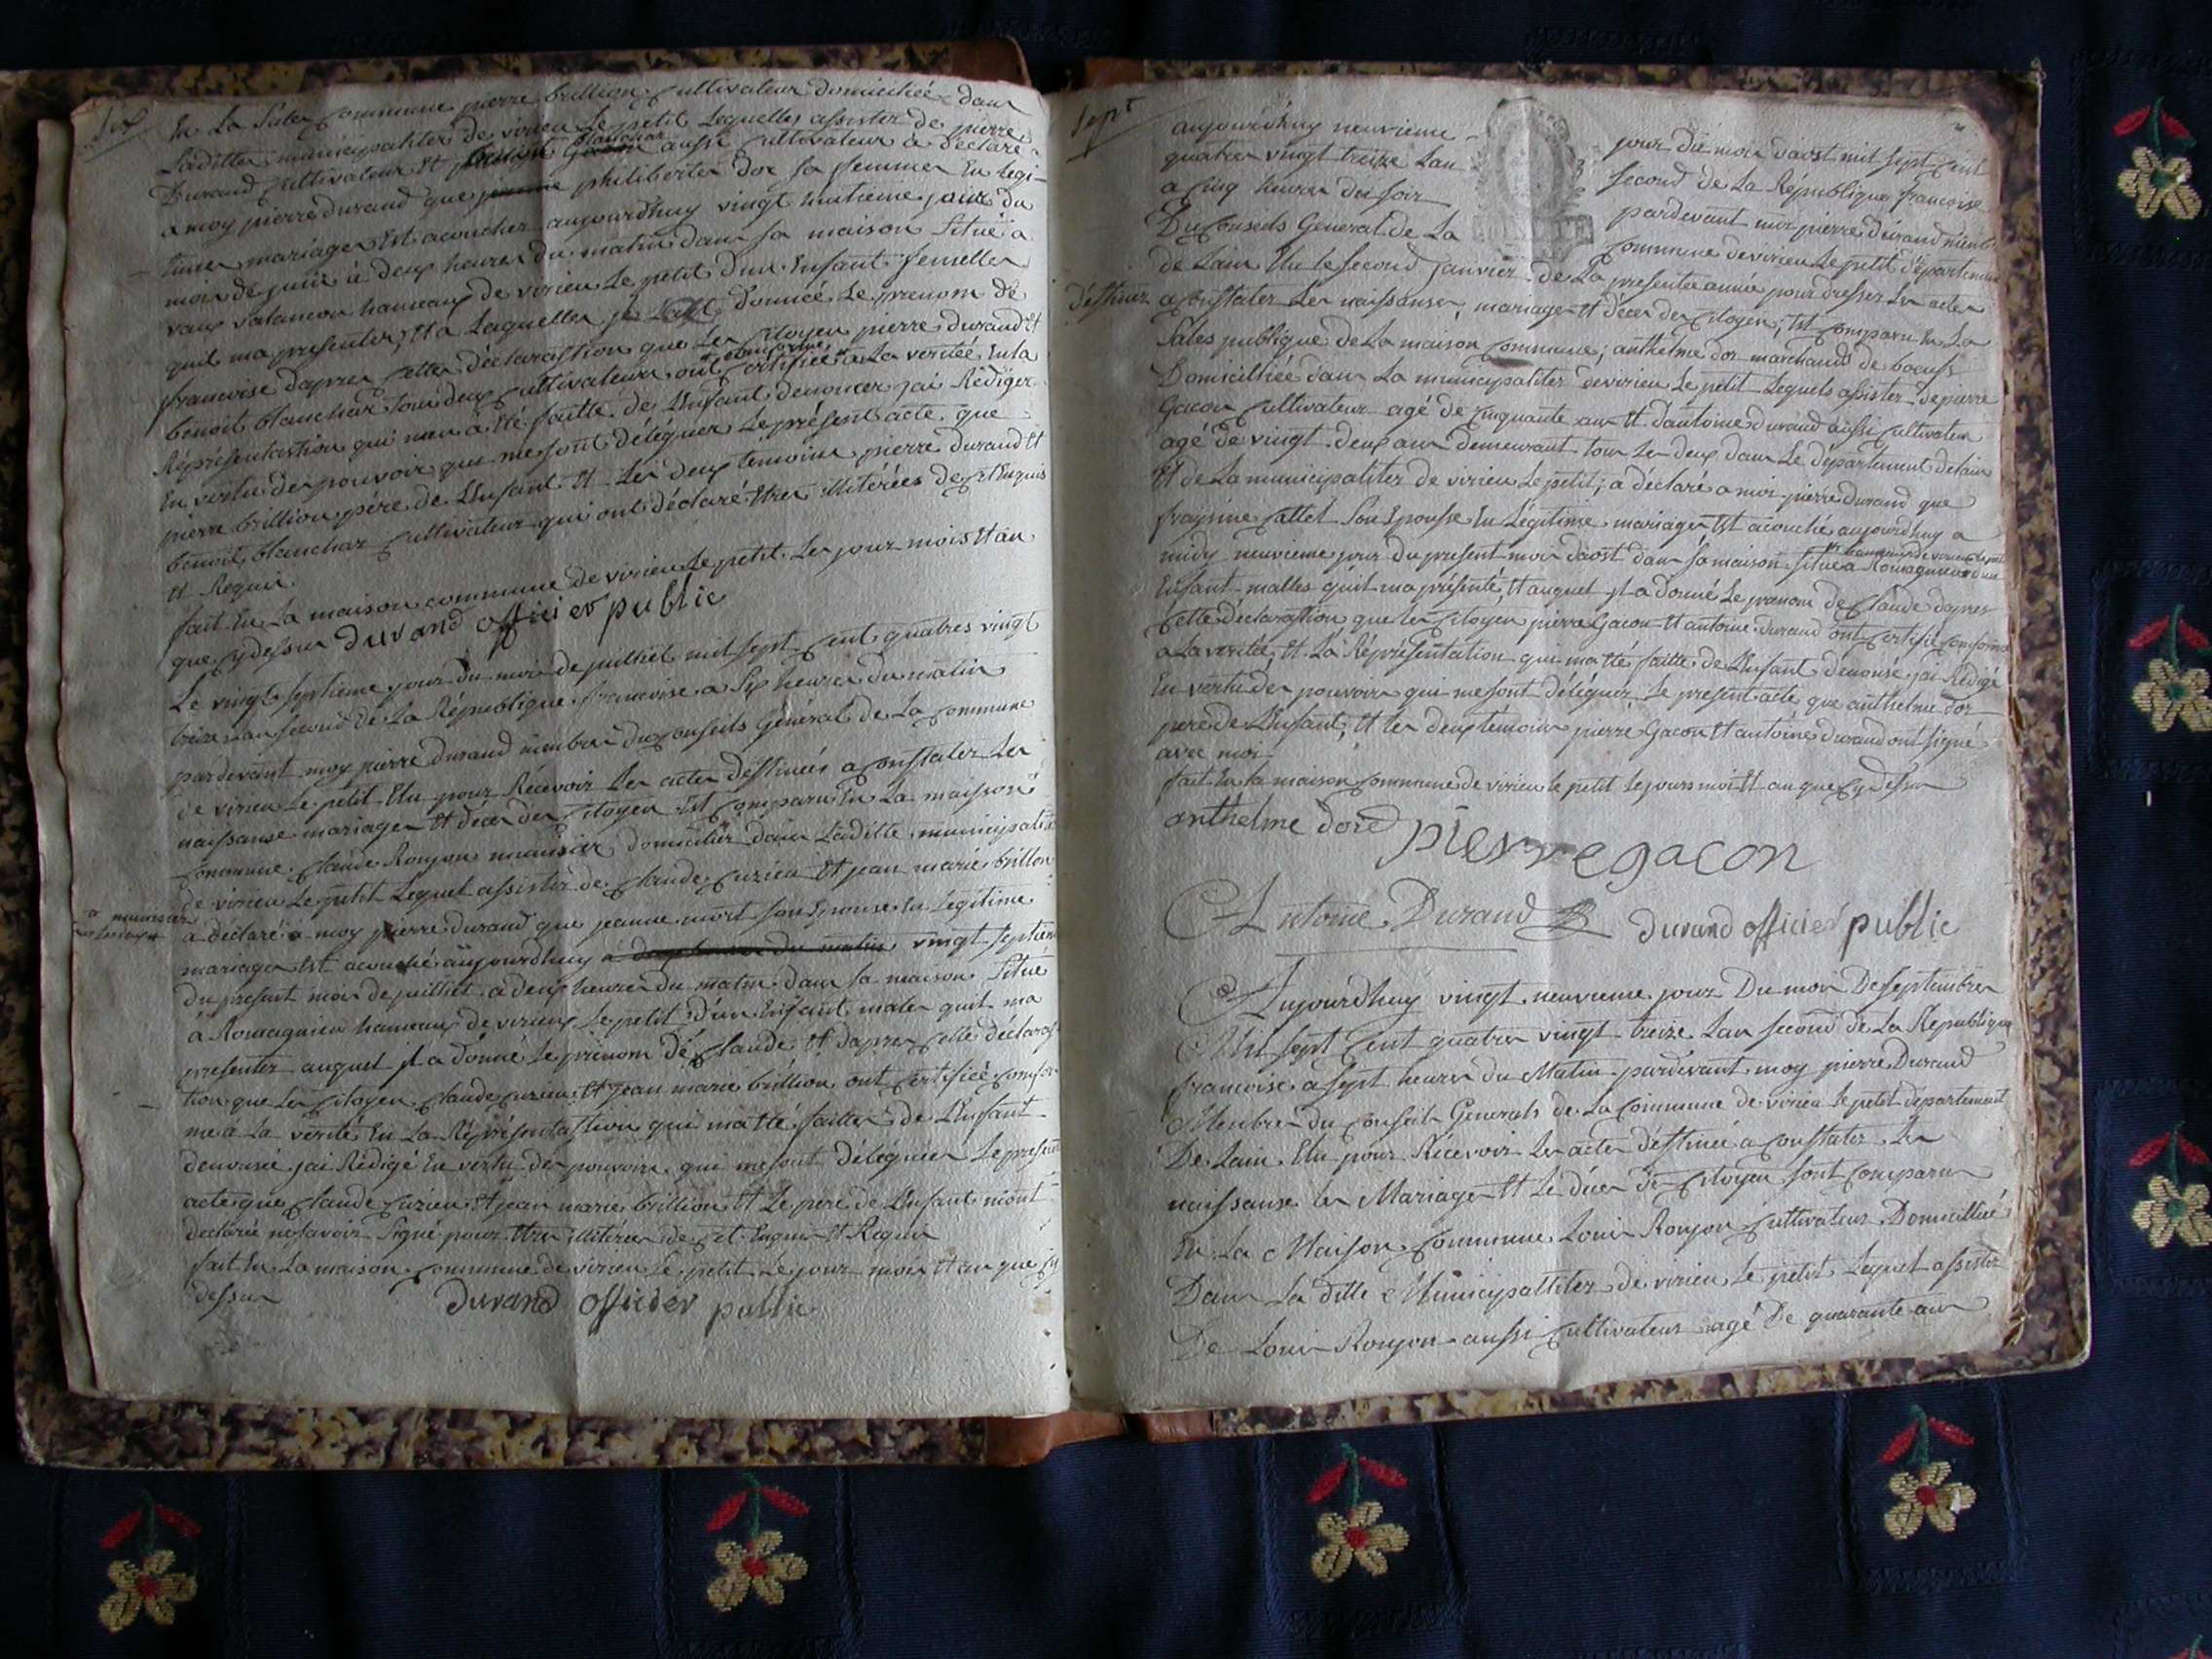 six
En La Salle Commune pierre brillion Cultivateur domiciliée dans
Laditte municipaliter de virieu Le petit Lequelles assister de pierre
Durand Cultivateur Et blanchar aussi Cultivateur a Déclaré
a moy pierre durand que philiberter Dor sa femmer En Legi-
timer mariager Est acoucher aujourdhuy vingt huitieme jour du
mois de juin à deux heures du matin dans sa maison Situé a
vaux Salancon hameaux de virieu Le petit d'un Enfant femeller
quil ma presenter, Et a Laqueller donnéé Le prenom de
francoise dapres Cetter déclarastion que Les Citoyen pierre durand Et
benoit blanchar tous deux Cultivateurs ont Certifiée conforme a La veritée En la
Réprésentastion qui men à Eté faitte de Lenfant denoncer jai Rédiger
En vertu des pouvoirs qui me sont déléguer Le présent acte que
pierre brillion père de Lenfant Et Les deux temoins pierre durand Et
benoit blanchar Cultivateur qui ont déclaré Etres illitérées de Et Enquis
Et Requis
fait En La maison commune de virieu Le petit Les jour mois Et an
que Cy dessus durand officier public
Le vingt septieme jour du mois de juilliet mil sept Cent quatres vingt
treize Lan second de La République francoise a Six heures du matin
pardevant moy pierre durand membre du Conseils Général de La Commune
de virieu Le petit Elu pour Récevoir Les actes destinées a Constater Les
naissanse mariager Et déces des Citoyen Est Comparu En La maisson
Commune Claude Roujon domicilier dans Laditte municipalité
de virieu Le petit Lequel assister de Claude Cuzieu Et jean marie brillon
à déclaré à moy pierre durand que jeanne mort son Epouse En Légitime
mariager Est acouché aujourdhuy a deux heures du matin vingt septiem
du présent mois de juilliet a deux heures du matin dans sa maison Situé
à Romagnieu hameaux de virieux Le petit d'un Enfant maler quil ma
presenter auquel il a donné Le prénom de Claude Et dapres Cette déclaras
tion que Les Citoyen Claude Cuzieu Et jean marie brillion ont Certifiéé Confor
me à La verité En La Réprésentastion qui ma Eté faitter de Lenfant
denoncée jai Rédigé En vertu des pouvoirs qui me sont déléguées Le present
acte que Claude Cuzieu Et jean marie brillion Et Le pere de Lenfant mont
déclarée ne savoir Signé pour Etres illitérées de Cet Enquis Et Requis
fait En La maison Commune de virieu Le petit Le jour mois Et an que Cy
dessus durand officier public
Sept
aujourdhuy neuvieme jour du mois daost mil sept Cent
quatres vingt treize Lan second de La République francoise
a Cinq heures du soir pardevant moi pierre durand membre
Du Conseils General de La Commune de virieu Le petit département
de Lain Elu le second janvier de La presente année pour dresser Les actes
déstinez a Constater Les naissanses, mariages Et déces des Citoyen; Est Comparu En La
Sales publique de La maison Commune; anthelme dor marchand de boeufs
Domicilliée dans La municipaliter de virieu Le petit Lequels assister de pierre
Gacon Cultivateur agé de Cinquante ans Et d'antoine durand aussi Cultivateur
agé de vingt deux ans demeurant tous Les deux dans Le département de lain
Et de La municipaliter de virieu Le petit; a déclaré a moi pierre durand que
Cattet Son Epousse En Légitime mariager Est acouché aujourdhuy a
midy neuvieme jour du present mois daost dans sa maison situé a Romagnieu hameaux de virieu Le petit d'un
Enfant malles quil ma présenté, Et auquel il a donné Le prenom de Claude dapres
Cette déclarastion que les Citoyen pierre Gacon Et antoine durand ont Certifié Conforme
a La verité, Et La Réprésentation qui ma Eté faitte de Lenfant denonsé jai Rédigé
En vertu des pouvoirs qui me sont déléguer Le present acte que anthelme dor
pere de Lenfant, Et les deux témoins pierre Gacon Et antoine durand ont signé
avec moi
fait En la maison Commune de virieu le petit Le jours mois Et an que Cy dessus
anthelme dore pierre gacon
Antoine Durand durand officier public
Aujourdhuy vingt neuvieme jour Du mois De septembres
Mil sept Cent quatres vingt treize Lan second de La République
francoise a sept heures du Matin pardevant moy pierre Durand
Membres du Conseils Generals de La Commune de virieu le petit departement
De Lain Elu pour Récevoir Les actes destinée a Constater Les
naissanse les Mariages Et Le déces de Citoyen sont Comparu
En La Maison Commune Louis Roujon Cultivateur Domicilliée
Dans La ditte Municipalliter de virieu Le petit Lequel assister
De Louis Roujon aussi Cultivateur agé De quarante ans